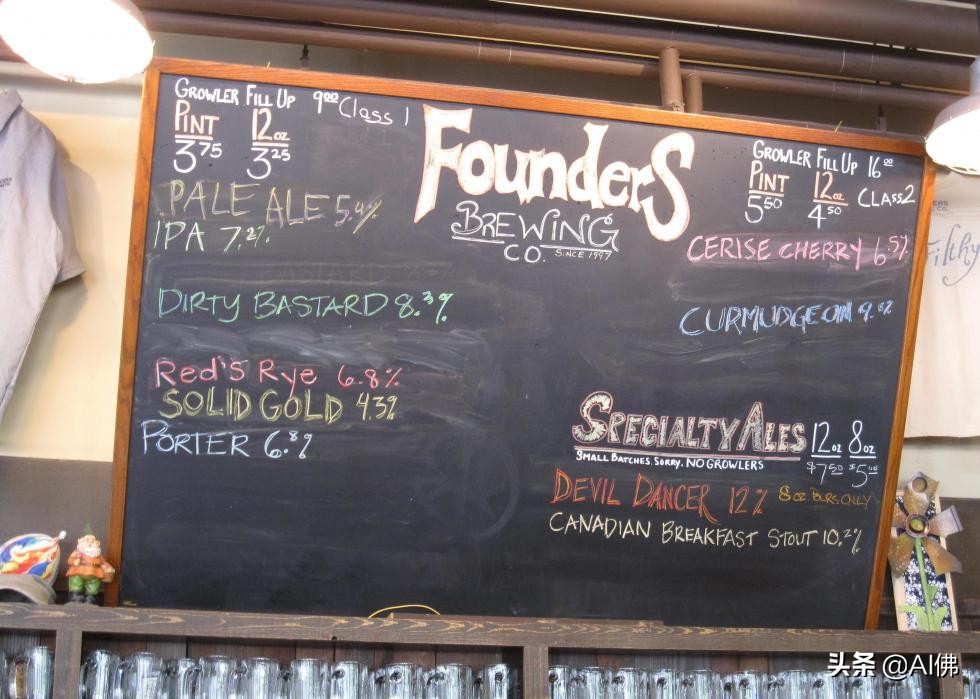 GROWLER FILL UP 9.00 Class 1
PINT 12oz
3.75 3.25
PALE ALE 5.4%
IPA 7.2%
DIRTY BASTARD 8.3%
Red's Rye 6.8%
SOLID GOLD 4.3%
PORTER 6.8%
FounderS
BREWING
CO. SINCE 1997
GROWLER FILL UP 16.00
PINT 12oz CLASS 2
5.50 4.50
CERISE CHERRY 6.5%
CURMUDGEON 9.8%
SPECIALTY ALES 12oz 8oz
SMALL BATCHES. SORRY. NO GROWLERS $7.50 $5.00
DEVIL DANCER 12% 8oz POURS ONLY
CANADIAN BREAKFAST STOUT 10.2%
Filthy
头条 @AI佛